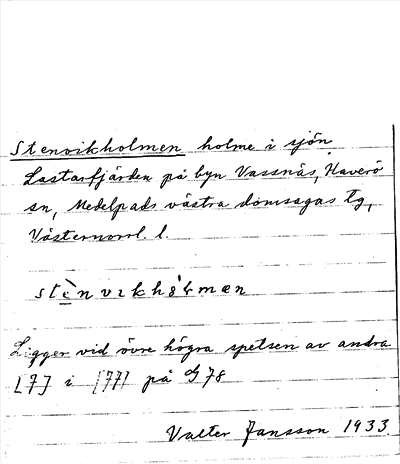 Stenvikholmen holme i sjön
Lastarfjärden på byn Vassnäs, Haverö
sn, Medelpads västra domsagas tg,
Västernorrl. l.
stènvɩkhǒɫmæn
Ligger vid övre högra spetsen av andra
[7] i [77] på G78
Valter Jansson 1933.